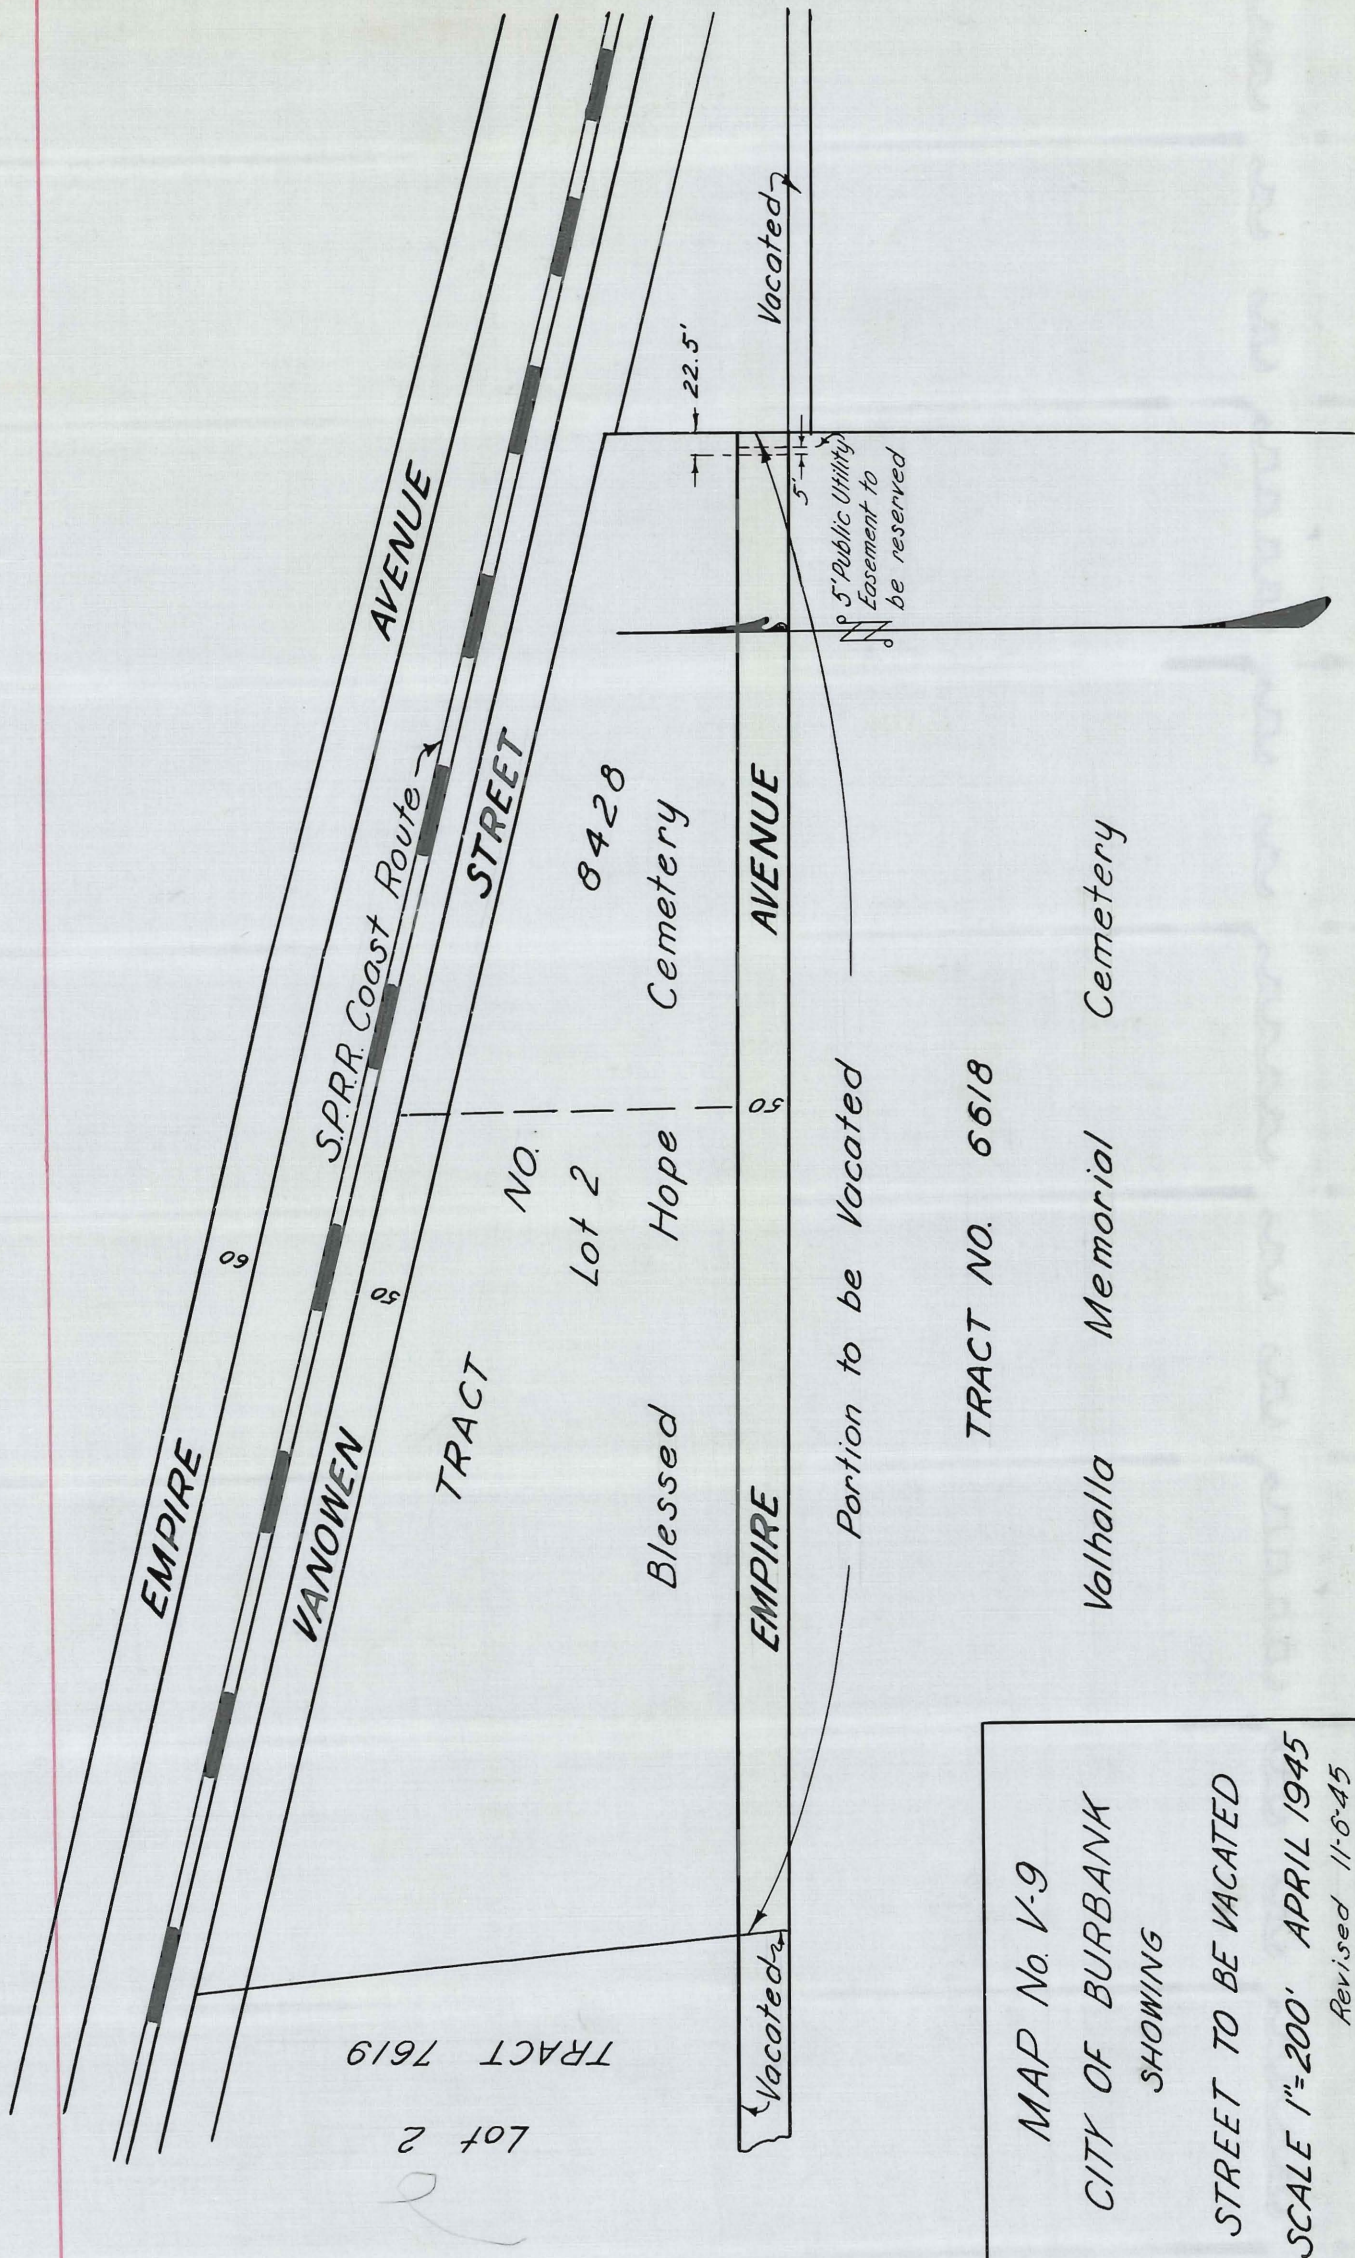 EMPIRE AVENUE
60
S.P.R.R. Coast Route
VANOWEN STREET
50
TRACT NO. 8428
Lot 2
Blessed Hope Cemetery
22.5'
Vacated
EMPIRE AVENUE
50
5'
5' Public Utility
Easement to
be reserved
Vacated
Portion to be Vacated
TRACT 7619
Lot 2
TRACT NO. 6618
Valhalla Memorial Cemetery
MAP No. V-9
CITY OF BURBANK
SHOWING
STREET TO BE VACATED
SCALE 1"=200' APRIL 1945
Revised 11-6-45